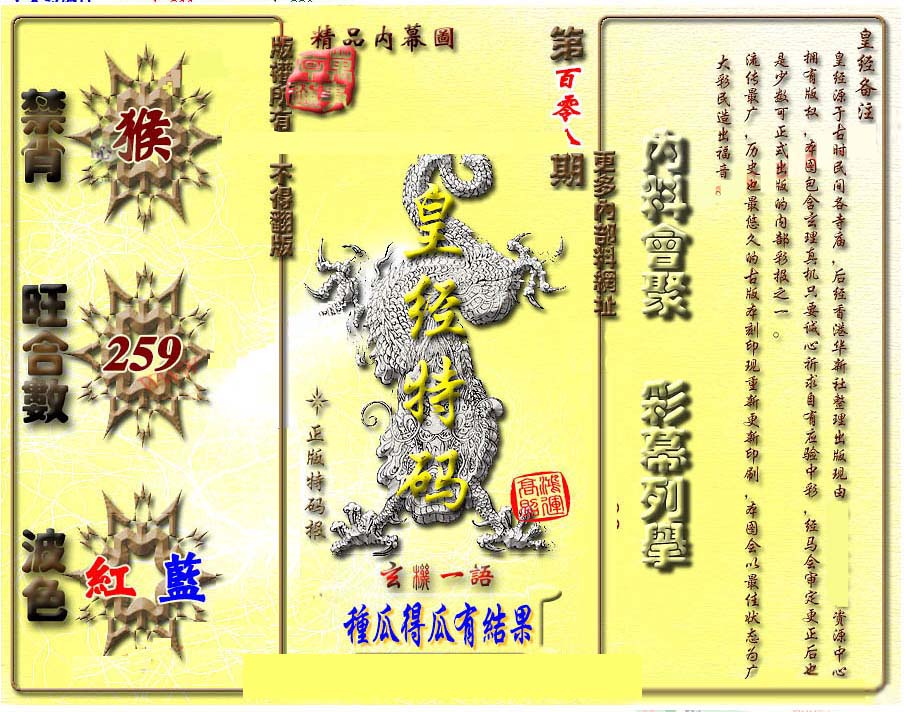 精品内幕圖
第百零八期
版權所有
不得翻版
更多內部料網址
禁肖
猴
旺合數
259
波色
紅 藍
皇经特码
正版特码报
鴻運高照
玄機一語
種瓜得瓜有結果
內料會聚
彩幕列舉
皇经备注
皇经源于古时民间各寺庙，后经香港华新社整理出版现由 资源中心
拥有版权，本图包含玄理真机只要诚心祈求自有应验中彩，经马会审定更正后也
是少数可正式出版的内部彩报之一。
流传最广，历史也最悠久的古版本刻印现重新更新印刷，本图会以最佳状态为广
大彩民造出福音